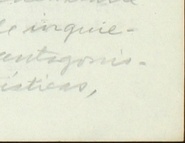 de inquie-
antagonis-
ísticas,